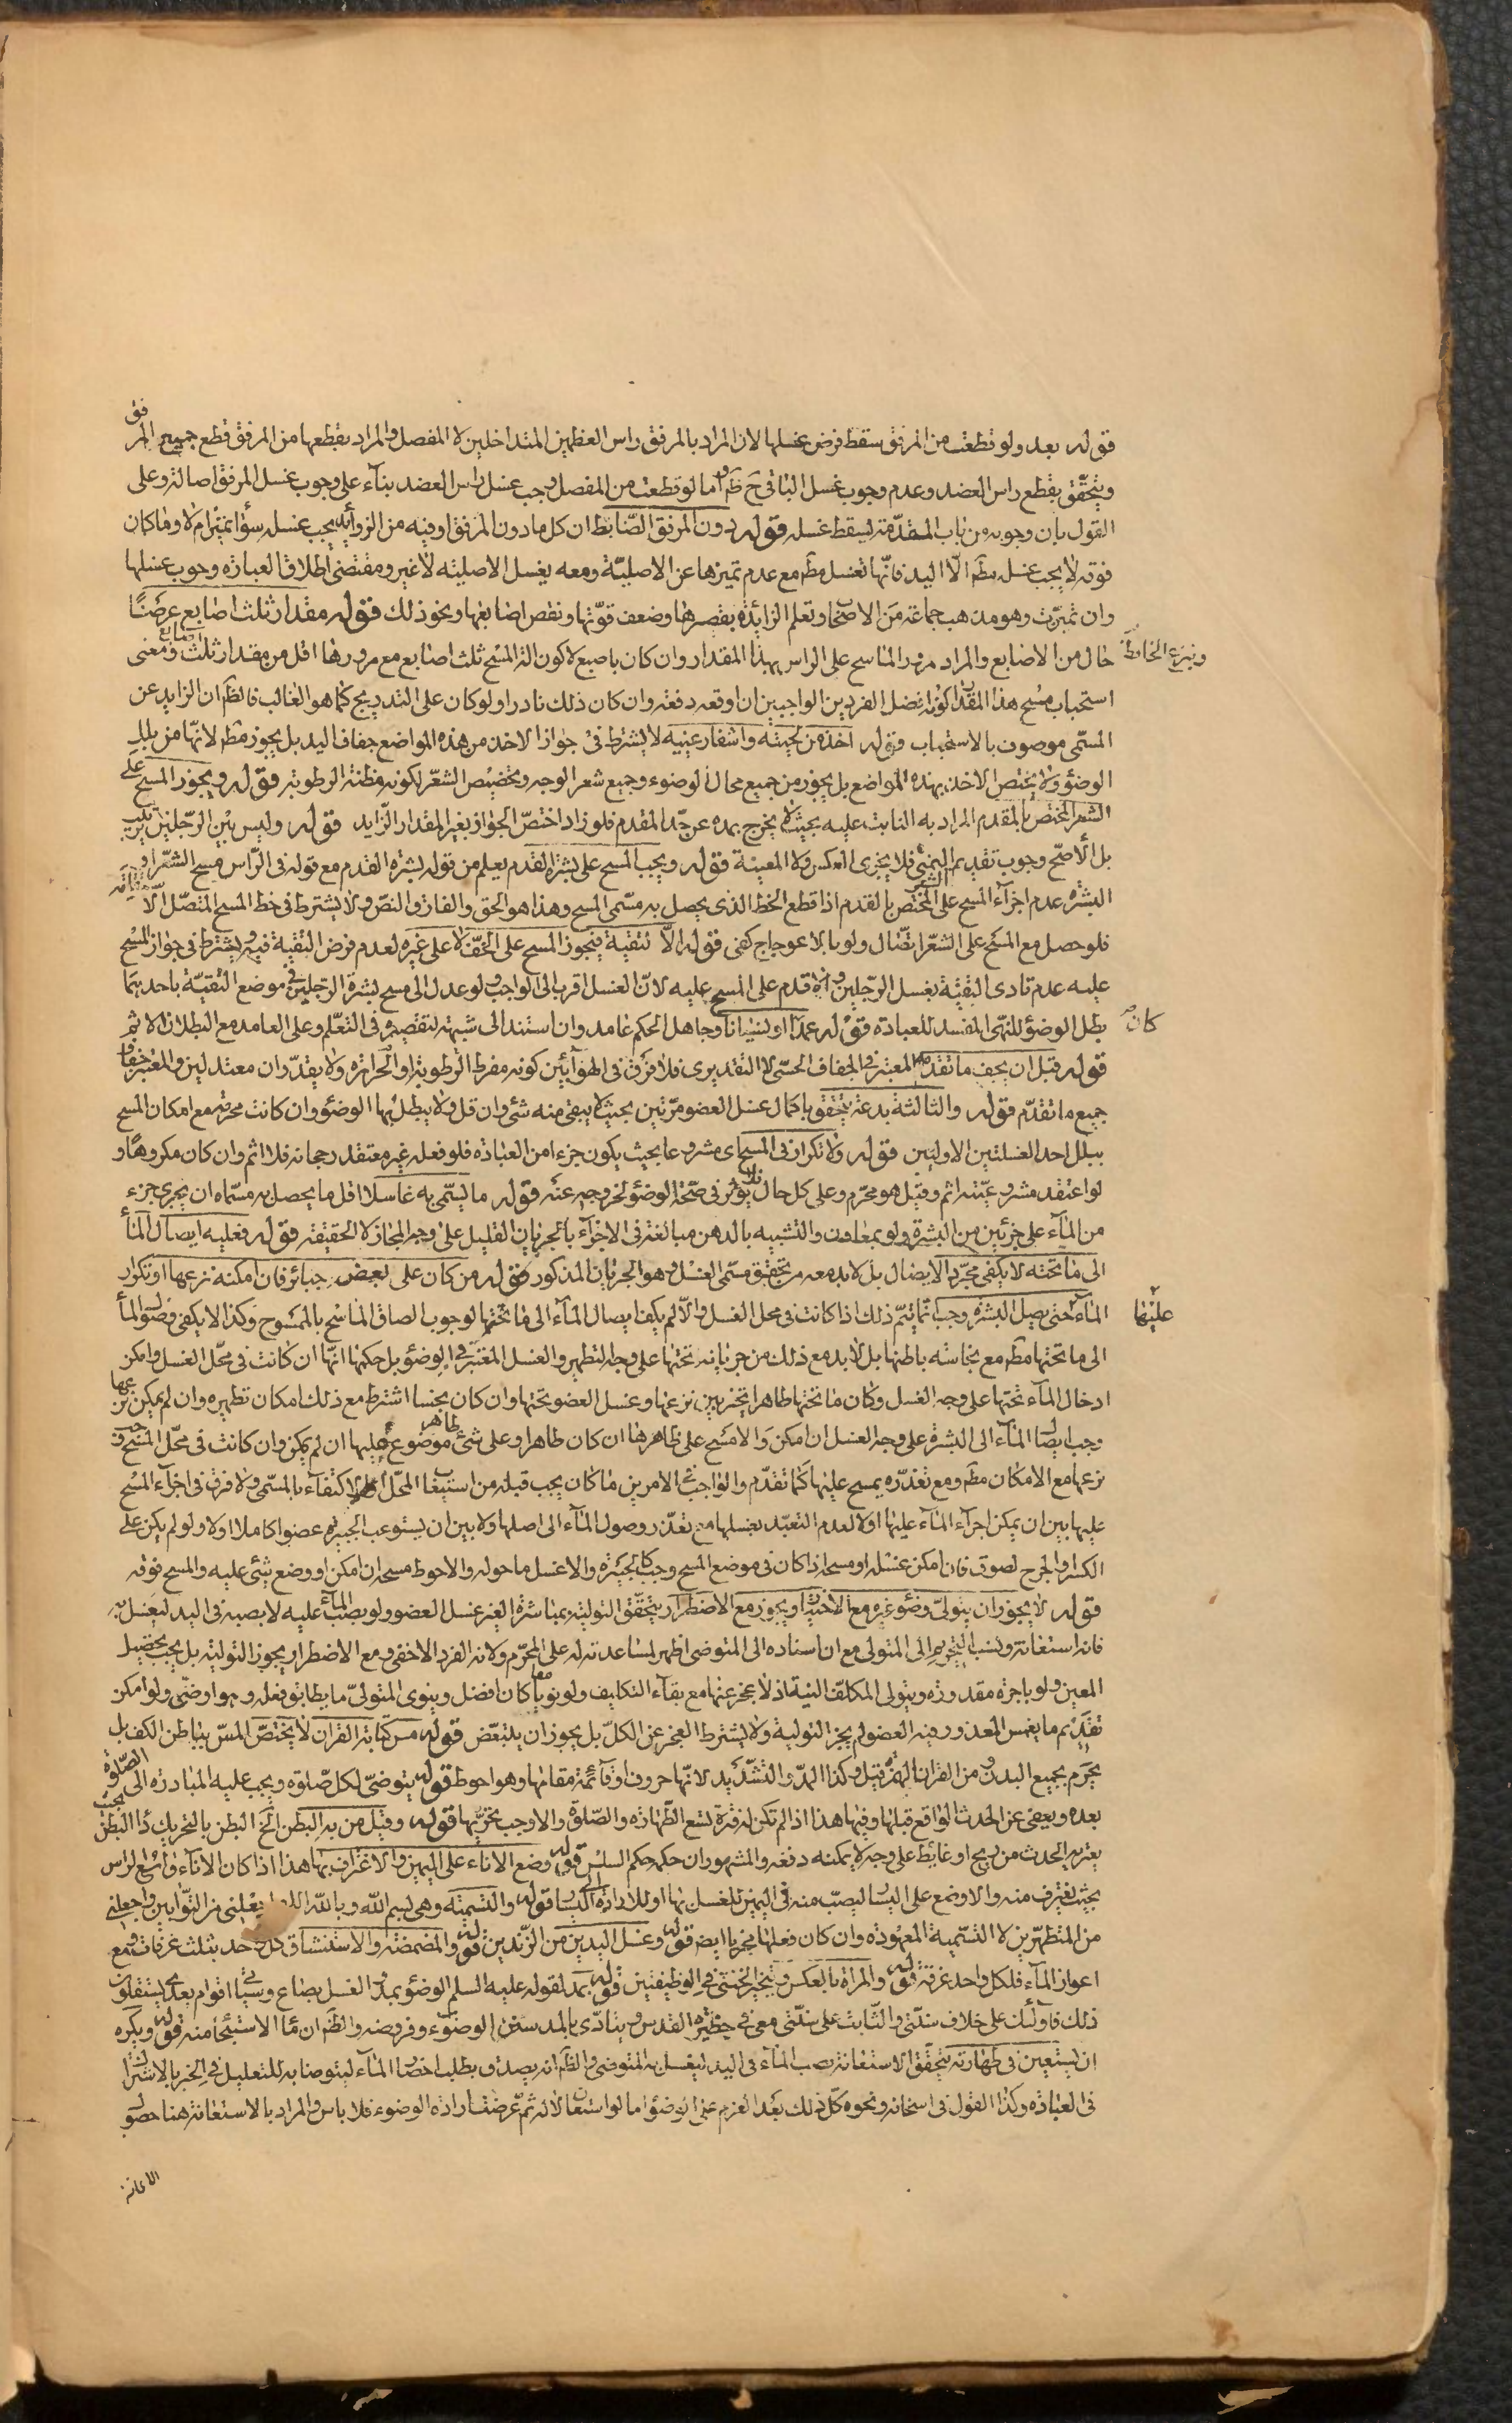 قوله بعد ولو قطعت من المرفق سقط فرض غسلها لان المراد بالمرفق راس العظمين المتداخلين لا المفصل والمراد بقطعها من المرفق قطع جميع المرفق
ويتحقق بقطع راس العضد وعدم وجوب غسل الباقى ح ظم واما لو قطعت من المفصل وجب غسل راس العضد بناء على وجوب غسل المرفق اصالة وعلى
القول بان وجوبه من باب المقدمة يسقط غسله قوله دون المرفق الضابط ان كل ما دون المرفق او فيه من الزوايد يجب غسله سواء تميز ام لا وما كان
فوقه لا يجب غسله مطم الا اليد فانها تغسل مطم مع عدم تميزها عن الاصلية ومعه يغسل الاصلية لا غير ومقتضى اطلاق العبارة وجوب غسلها
وان تميزت وهو مذهب جماعة من الاصحاب وتعلم الزائدة بقصرها وضعف قوتها ونقص اصابعها ونحو ذلك قوله مقدار ثلث اصابع عرضا
حال من الاصابع والمراد مرور الماسح على الراس بهذا المقدار وان كان باصبع لا كون الة المسح ثلث اصابع مع مرورها اقل من مقدار ثلث اصابع ومعنى
استحباب مسح هذا المقدار كونه افضل الفردين الواجبين ان اوقعه دفعة وان كان ذلك نادرا ولو كان على التدريج كما هو الغالب فالظم ان الزايد عن
المسمى موصوف بالاستحباب قوله اخذ من لحيته واشفار عينيه لا يشترط فى جواز الاخذ من هذه المواضع جفاف اليد بل يجوز مطم لانها من بلل
الوضوء ولا يختص الاخذ بهذه المواضع بل يجوز من جميع محال الوضوء وجميع شعر الوجه وتخصيص الشعر لكونه مظنة الرطوبة قوله ويجوز المسح على
الشعر المختص بالمقدم المراد به النابت عليه بحيث لا يخرج بمده عن حد المقدم فلو زاد اختص الجواز بغير المقدار الزايد قوله وليس بين الرجلين ترتيب
بل الاصح وجوب تقديم اليمنى فلا يجزى العكس ولا المعية قوله ويجب المسح على بشرة القدم يعلم من قوله بشرة القدم مع قوله فى الراس مسح الشعر او
البشرة عدم اجزاء المسح على الشعر المختص بالقدم اذا قطع الخط الذى يحصل به مسمى المسح وهذا هو الحق والفارق النص ولا يشترط فى خط المسح المتصل الا
فلو حصل مع المسح على الشعر اتصال ولو بالاعوجاج كفى قوله الا لتقية فيجوز المسح على الخف لا على غيره لعدم فرض التقية فيه ويشترط فى جواز المسح
عليه عدم تادى التقية بغسل الرجلين والا قدم على المسح عليه لان الغسل اقرب الى الواجب ولو عدل الى مسح بشرة الرجلين فى موضع التقية باحديهما
بطل الوضوء للنهى المفسد للعبادة قوله عمدا او نسيانا وجاهل الحكم عامد وان استند الى شبهة لتقصيره فى التعلم وعلى العامد مع البطلان الاثم
قوله قبل ان يجف ما تقدم المعتبر فى الجفاف الحسى لا التقديرى فلا فرق فى الهواء بين كونه مفرط الرطوبة او الحرارة ولا يقدر ان معتدلين والمعتبر جفاف
جميع ما تقدم قوله والثالثة بدعة يتحقق باكمال غسل العضو مرتين بحيث لا يبقى منه شئ وان قل ولا يبطل بها الوضوء وان كانت محرمة مع امكان المسح
ببلل احد الغسلتين الاوليين قوله ولا تكرار فى المسح اى مشروعا بحيث يكون جزء امن العبادة فلو فعله غير معتقد رجحانه فلا اثم وان كان مكروها و
لو اعتقد مشروعيته اثم وقيل هو محرم وعلى كل حال فلا يؤثر فى صحة الوضوء لخروجه عنه قوله ما يسمى به غاسلا اقل ما يحصل به مسماه ان يجرى جزء
من الماء على جزئين من البشرة ولو بمعاون والتشبيه بالدهن مبالغة فى الاجزاء بالجريان القليل على وجه المجاز لا الحقيقة قوله فعليه ايصال الماء
الى ما تحته لا يكفى مجرد الايصال بل لا بد معه من تحقيق مسمى الغسل وهو الجريان المذكور قوله من كان على بعض جبائر فان امكنه نزعها او تكرار
الماء حتى يصل البشرة وجب انما يتم ذلك اذا كانت فى محل الغسل والا لم يكف ايصال الماء الى ما تحتها لوجوب الصاق الماسح بالممسوح وكذا لا يكفى وصول الماء
الى ما تحتها مطم مع نجاسة باطنها بل لا بد مع ذلك من جريانه تحتها على وجه التطهير والغسل المعتبر فى الوضوء بل حكمها انها ان كانت فى محل الغسل وامكن
ادخال الماء تحتها على وجه الغسل وكان ما تحتها طاهرا تخير بين نزعها وغسل العضو تحتها وان كان نجسا اشترط مع ذلك امكان تطهيره وان لم يمكن نزعها
وجب ايصال الماء الى البشرة على وجه الغسل ان امكن والا مسح على ظاهرها ان كان طاهرا وعلى شئ طاهر موضوع عليها ان لم يكن وان كانت فى محل المسح وجب
نزعها مع الامكان مطم ومع تعذره يمسح عليها كما تقدم والواجب فى الامرين ما كان يجب قبله من استيعاب المحل او الاكتفاء بالمسمى ولا فرق فى اجزاء المسح
عليها بين ان يمكن اجراء الماء عليها او لا لعدم التعبد بغسلها مع تعذر وصول الماء الى اصلها ولا بين ان يستوعب الجبيرة عضوا كاملا او لا ولو لم يكن على
الكسر او الجرح لصوق فان امكن غسله او مسحه اذا كان فى موضع المسح وجب كالجبيرة والا غسل ما حوله والاحوط مسحه ان امكن او وضع شئ عليه والمسح فوقه
قوله لا يجوز ان يتولى وضوءه غيره مع الاختيار ويجوز مع الاضطرار يتحقق التولية بمباشرة الغير غسل العضو ولو بصب الماء عليه لا بصبه فى اليد ليغسل به
فانه استعانة ونسب التحريم الى المتولى مع ان اسناده الى المتوضى اظهر لمساعدته له على المحرم ولانه الفرد الاخفى ومع الاضطرار يجوز التولية بل يجب تحصيل
المعين ولو باجرة مقدورة ويتولى المكلف النية اذ لا عجز عنها مع بقاء التكليف ولو نويا معا كان افضل وينوى المتولى ما يطابق فعله وهو اوضى ولو امكن
تقديم ما يغمس المعذور فيه العضو لم يجز التولية ولا يشترط العجز عن الكل بل يجوز ان يتبعض قوله مس كتابة القران لا يختص المس بباطن الكف بل
يحرم بجميع البدن ومن القران الهمزة قيل وكذا المد والتشديد لانها حروف او قائمة مقامها وهو احوط قوله يتوضى لكل صلوة ويجب عليه المبادرة الى الصلوة
بعده ويعفى عن الحدث الواقع قبلها وفيها هذا اذا لم تكن له فترة تسع الطهارة والصلوة والا وجب تحريها قوله وقيل من به البطن الخ البطن بالتحريك داء البطن بحيث
يعتريه الحدث من ريح او غائط على وجه لا يمكنه دفعه والمشهور ان حكمه حكم السلس قوله وضع الاناء على اليمين والاغتراف بها هذا اذا كان الاناء واسع الراس
بحيث يغترف منه والا وضع على اليسار ليصب منه فى اليمين للغسل بها او للادارة الى اليسار قوله والتسمية وهى بسم الله وبالله اللهم اجعلنى من التوابين واجعلنى
من المتطهرين لا التسمية المعهودة وان كان فعلها مجزيا ايضم قوله وغسل اليدين من الزندين قوله والمضمضة والاستنشاق كل واحد بثلث غرفات ومع
اعواز الماء فلكل واحد غرفة قوله والمراة بالعكس ويتخير الخنثى فى الوظيفتين قوله بمد لقوله عليه السلم الوضوء بمد والغسل بصاع وسياتى اقوام بعدى يستقلون
ذلك فاولئك على خلاف سنتى والثابت على سنتى معى فى حظيرة القدس ويتادى بالمد سنن الوضوء وفروضه والظم ان ماء الاستنجاء منه قوله ويكره
ان يستعين فى طهارته يتحقق الاستعانة بصب الماء فى اليد ليغسل به المتوضى والظم انه يصدق بطلب احضار الماء ليتوضا به للتعليل فى الخبر بالاشتراك
فى العبادة وكذا القول فى اسخانه ونحوه كل ذلك بعد العزم على الوضوء اما لو استعان لا له ثم عرضت ارادة الوضوء فلا باس والمراد بالاستعانة هنا حصول
الاعانة
كان
عليها